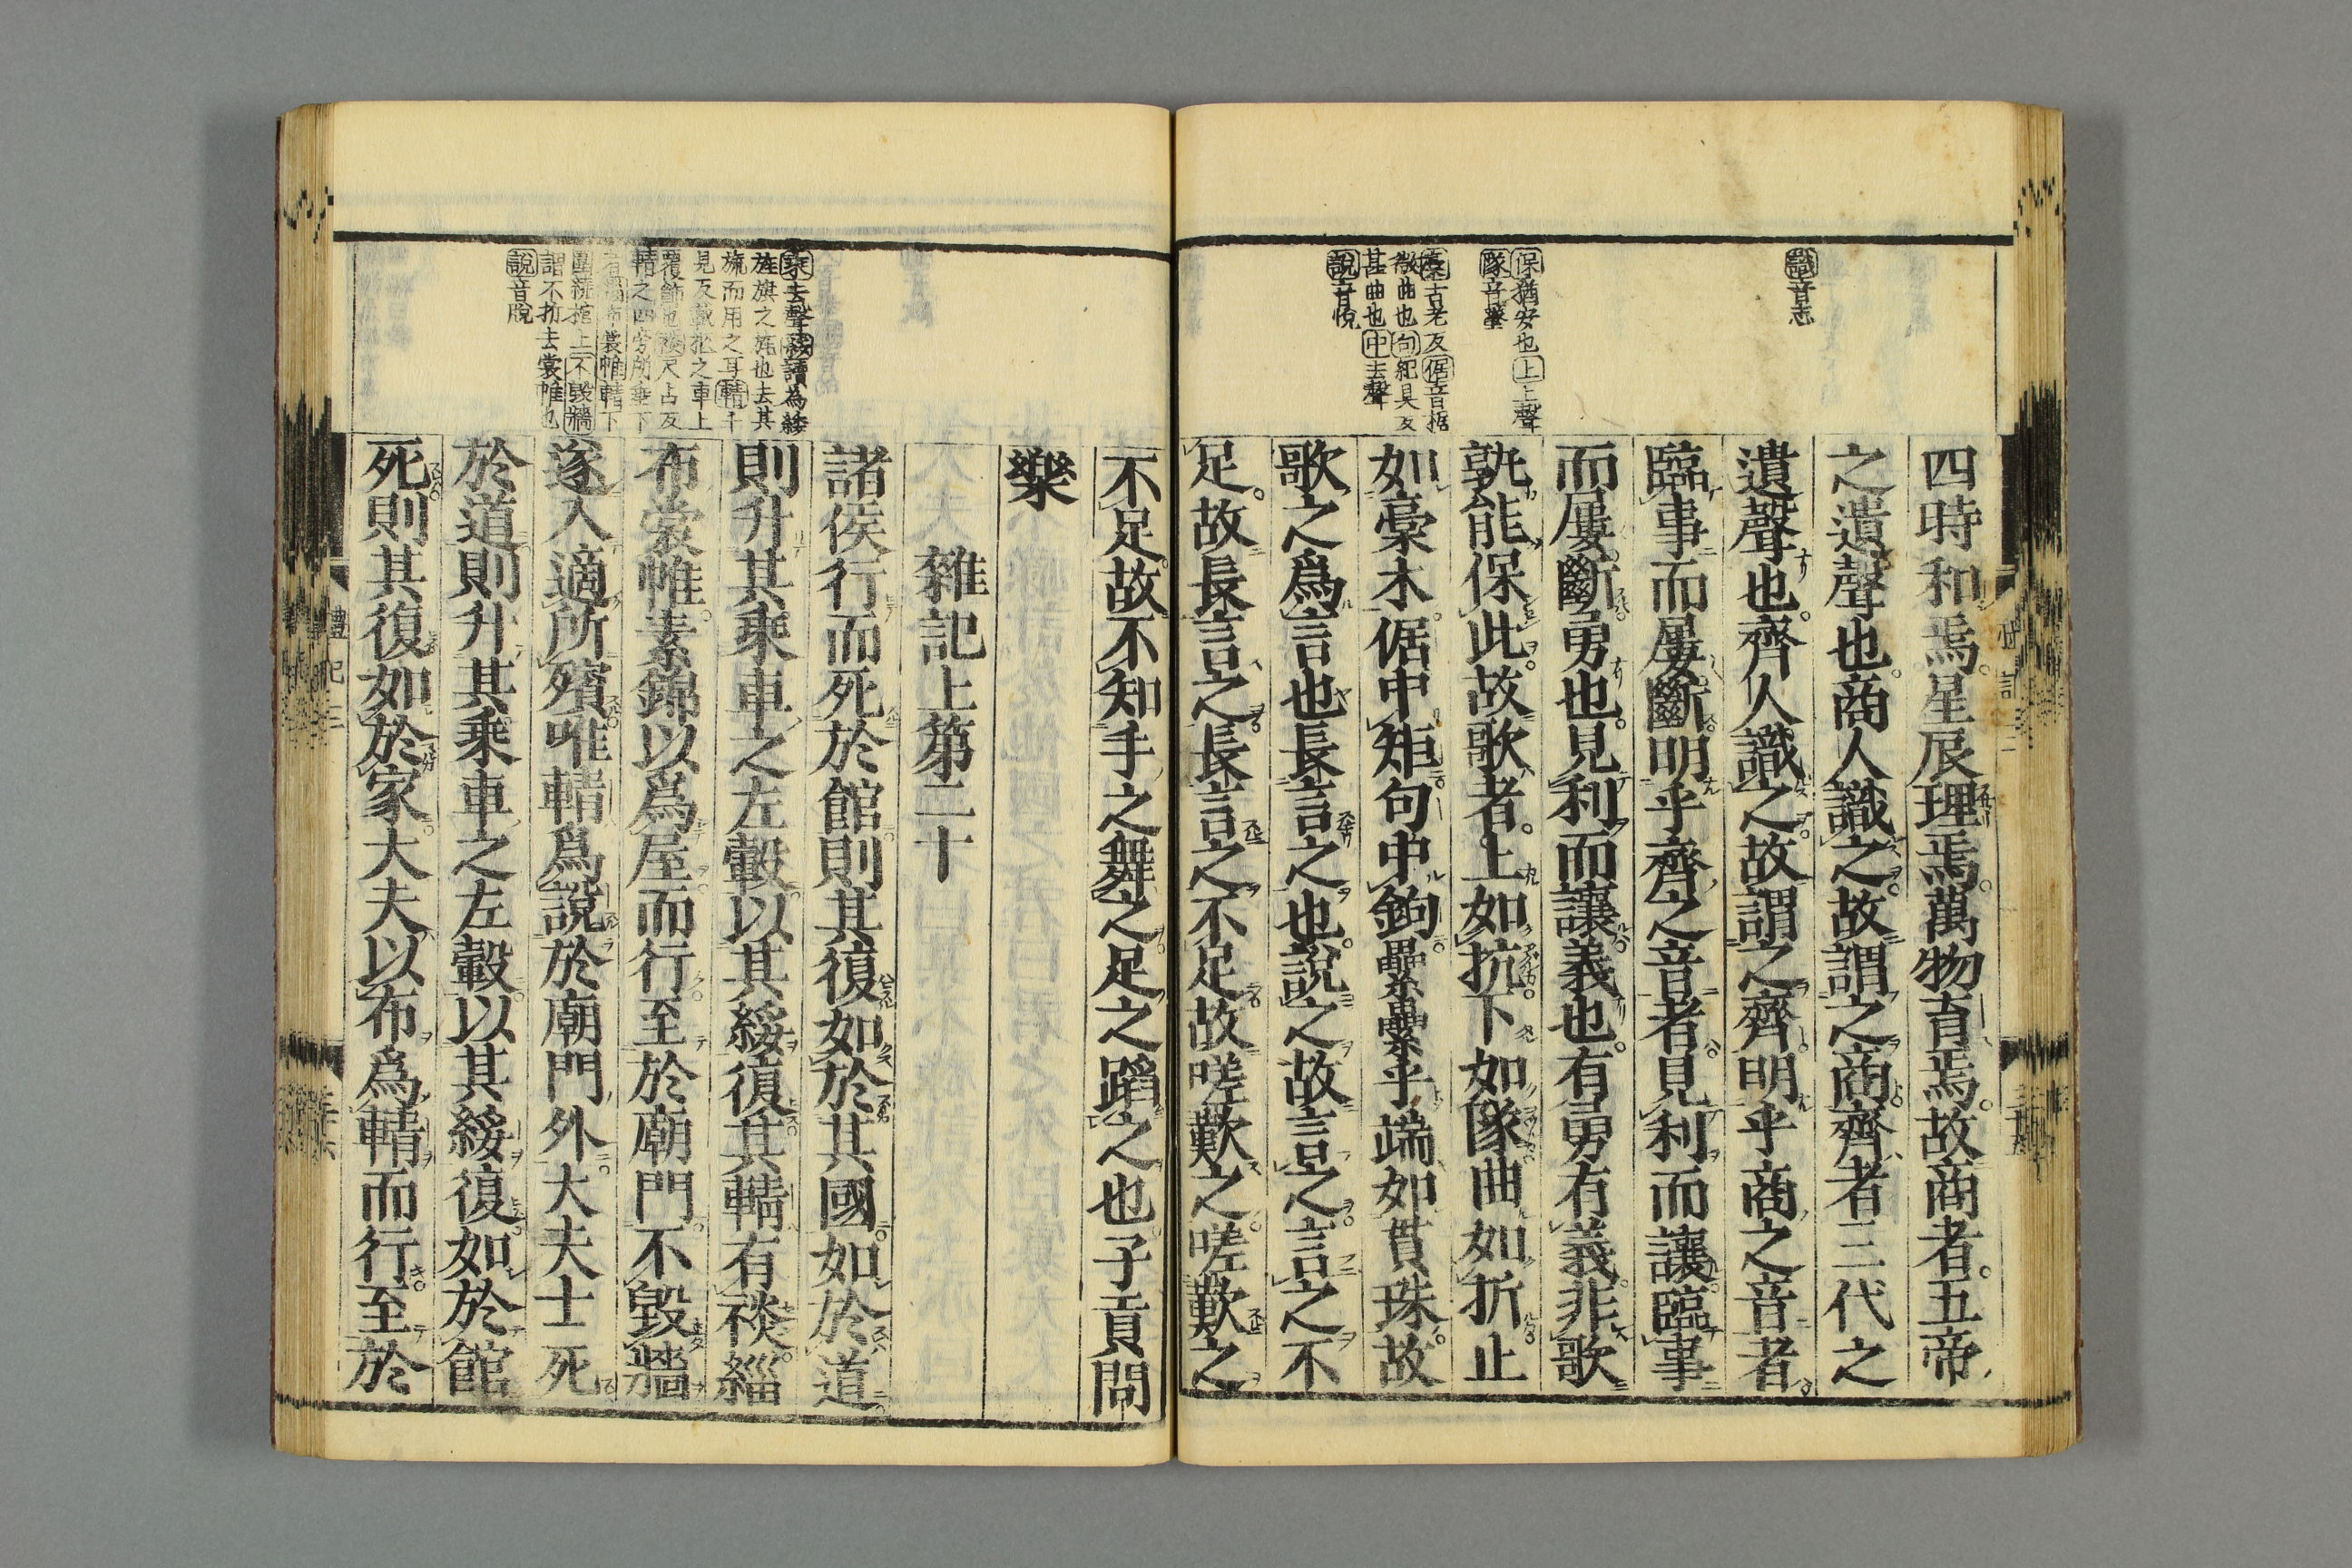 四時和焉星辰理焉萬物育焉故商者五帝
之遺聲也商人識之故謂之商齊者三代之
遺聲也齊人識之故謂之齊明乎商之音者
臨事而屢斷明乎齊之音者見利而讓臨事
而屢斷勇也見利而讓義也有勇有義非歌
孰能保此故歌者上如抗下如隊曲如折止
如槀木倨中矩句中鉤纍纍乎端如貫珠故
歌之爲言也長言之也說之故言之言之不
足故長言之長言之不足故嗟歎之嗟歎之
識音志
保猶安也上上聲
隊音墜
槀古老反倨音据
微曲也句紀具反
甚曲也中去聲
說音悅
不足故不知手之舞之足之蹈之也子貢問
樂
雜記上第二十
諸侯行而死於館則其復如於其國如於道
則升其乘車之左轂以其綏復其輤有裧緇
布裳帷素錦以爲屋而行至於廟門不毀牆
遂入適所殯唯輤爲說於廟門外大夫士死
於道則升其乘車之左轂以其綏復如於館
死則其復如於家大夫以布爲輤而行至於
乘去聲綏讀為緌
旌旗之旄也去其
旒而用之耳輤千
見反載柩之車上
覆飾也裧尺占反
輤之四旁所垂下
者緇布裳帷輤下
圍繞棺上不毀牆
謂不折去裳帷也
說音脫
禮記三